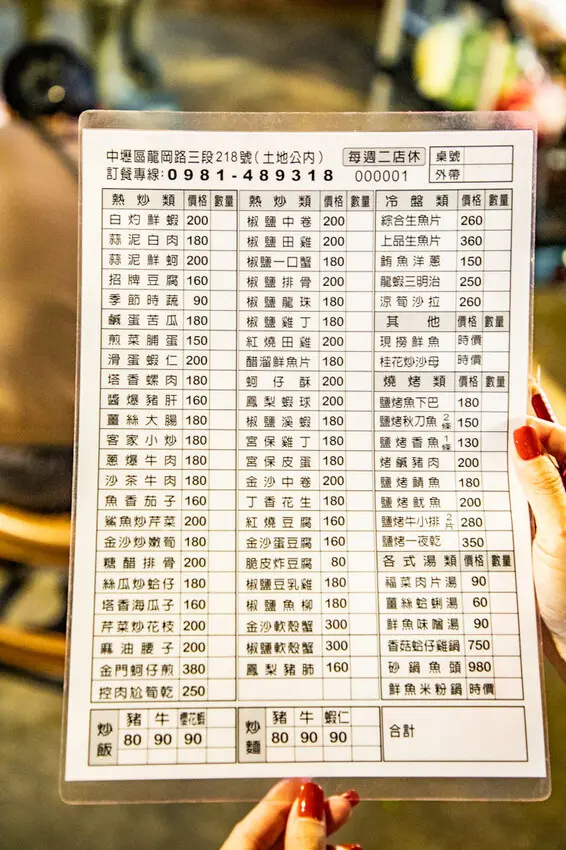 中壢區龍岡路三段218號(土地公內) 每週二店休 桌號
訂餐專線:0981-489318 000001 外帶
熱炒類 價格 數量
白灼鮮蝦 200
蒜泥白肉 180
蒜泥鮮蚵 200
招牌豆腐 160
季節時蔬 90
鹹蛋苦瓜 180
煎菜脯蛋 150
滑蛋蝦仁 200
塔香螺肉 180
醬爆豬肝 160
薑絲大腸 180
客家小炒 180
蔥爆牛肉 180
沙茶牛肉 180
魚香茄子 160
鯊魚炒芹菜 200
金沙炒嫩筍 180
糖醋排骨 200
絲瓜炒蛤仔 180
塔香海瓜子 160
芹菜炒花枝 200
麻油腰子 200
金門蚵仔煎 380
控肉尬筍乾 250
熱炒類 價格 數量
椒鹽中卷 200
椒鹽田雞 200
椒鹽一口蟹 180
椒鹽排骨 200
椒鹽龍珠 180
椒鹽雞丁 180
紅燒田雞 200
醋溜鮮魚片 180
蚵仔酥 200
鳳梨蝦球 200
椒鹽溪蝦 180
宮保雞丁 180
宮保皮蛋 180
金沙中卷 200
丁香花生 180
紅燒豆腐 160
金沙蛋豆腐 160
脆皮炸豆腐 80
椒鹽豆乳雞 180
椒鹽魚柳 180
金沙軟殼蟹 300
椒鹽軟殼蟹 300
鳳梨豬肺 160
冷盤類 價格 數量
綜合生魚片 260
上品生魚片 360
鮪魚洋蔥 150
龍蝦三明治 250
涼筍沙拉 260
其他 價格 數量
現撈鮮魚 時價
桂花炒沙母 時價
燒烤類 價格 數量
鹽烤魚下巴 180
鹽烤秋刀魚2條 150
鹽烤香魚1條 130
烤鹹豬肉 200
鹽烤鯖魚 180
鹽烤魷魚 200
鹽烤牛小排2片 280
鹽烤一夜乾 350
各式湯類 價格 數量
福菜肉片湯 90
薑絲蛤蜊湯 60
鮮魚味噌湯 90
香菇蛤仔雞鍋 750
砂鍋魚頭 980
鮮魚米粉鍋 時價
炒飯 豬 牛 櫻花蝦
80 90 90
炒麵 豬 牛 蝦仁
80 90 90
合計